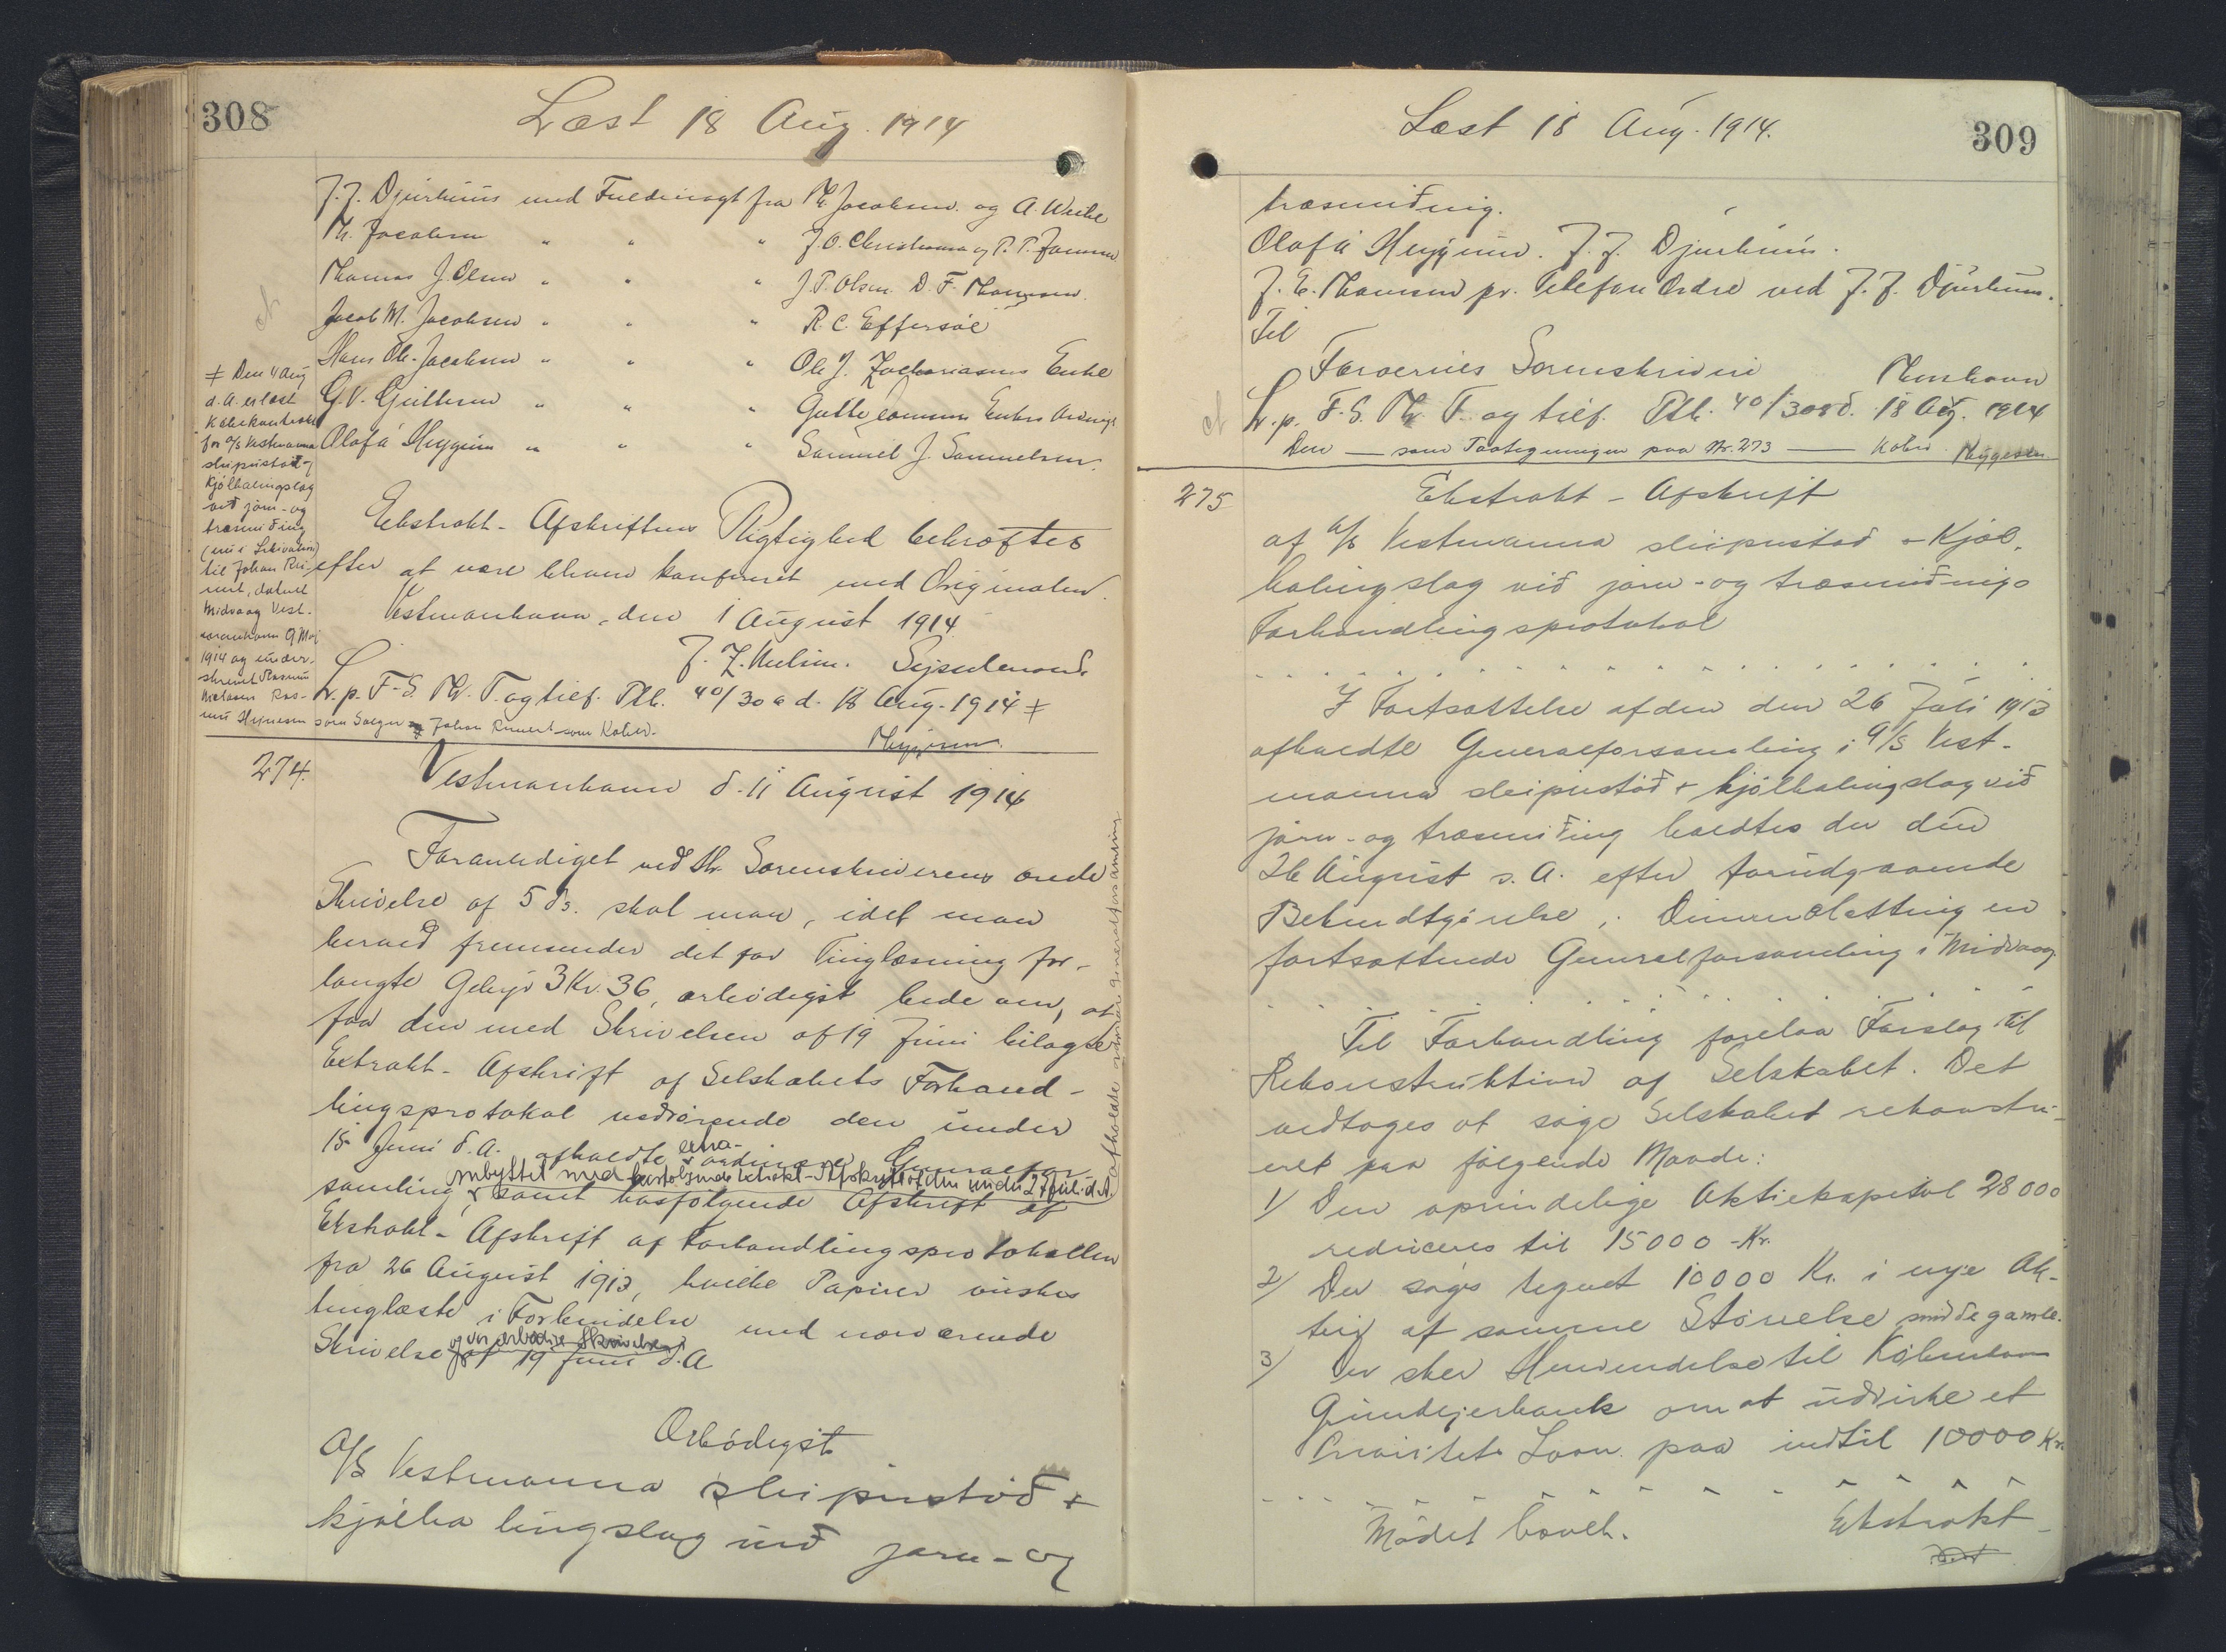 308
Læst 18 Aug. 1914
J. J. Djurhuus med Fuldmagt fra M. Jacobsen og A. Weihe
M. Jacobsen " " " J. O. Christiansen og P. P. Jansen
Thomas J. Olsen " " " J. P. Olsen D. F. Thomsen
Jacob M. Jacobsen " " " R. C. Effersøe
Hans Ole Jacobsen " " " Ole J. Zachariasens Enke
G. V. Guttesen " " " Guttesens Enkes
Olaf á Heygum " " " Samuel J. Samuelsen.
Ekstrakt-Afskriftens Rigtighed bekræftes
efter at være bleven konfereret med Originalen.
Vestmanhavn, den 1 August 1914.
J. Z. Nielsen. Sysselmand.
L. p. F-S. Th. T. og tilf. Ptk. 40/306 d. 18 Aug. 1914 ≠
≠ Den 4 Aug
d. A. er læst
Købekontrakt
for A/S Vestmanna
sleipistøð +
kjølhalingslag
við jarn- og
træsmiðing
til Johan Rei-
nert, dateret
Midvaag Vest-
manhavn 9 Maj
1914 og under-
skrevet Rasmus
Niclasen Ras-
mus Heinesen som Sælger og Johan Reinert som Køber.
274.
Vestmanhavn d. 11 August 1914
Foranlediget ved Hr. Sorenskriverens ærede
Skrivelse af 5 ds. skal man, idet man
herved fremsender det for Tinglæsning for-
langte Gebyr 3 Kr. 36, ærbødigst bede om, at
faa den med Skrivelsen af 19 Juni bilagte
Extrakt-Afskrift af Selskabets Forhand-
lingsprotokol vedrørende den under
15 Juni d. A. afholdte extra-
ordinære Generalfor-
samling, ombyttet med hosfølgende Ekstrakt-Afskrift af den under 27 Juli d. A.
afholdte ordinære Generalforsamling
samt hosfølgende Afskrift af
Ekstrakt-Afskrift af Forhandlingsprotokollen
fra 26 August 1913, hvilke Papirer ønskes
tinglæste i Forbindelse med nærværende
Skrivelse og vor ærbødige Skrivelse
af 19 Juni d. A
Ærbødigst
A/S Vestmanna sleipistøð +
kjølhalingslag við jarn- og
309
Læst 18 Aug. 1914.
træsmiðing.
Olaf á Heygum. J. J. Djurhuus.
J. E. Thomsen pr. Telefon Ordre ved J. J. Djurhuus.
Til
Færøernes Sorenskriveri Thorshavn
L. p. F. S. Th. T. og tilf. Ptk. 40/308 d. 18 Aug. 1914
Den — som Paategningen paa Nr. 273 — Køber.
275
Ekstrakt-Afskrift
af A/S Vestmanna sleipistøð + Kjøl-
halingslag við jarn- og træsmiðings
Forhandlingsprotokol
I Fortsættelse af den den 26 Juli 1913
afholdte Generalforsamling i A/S Vest-
manna sleipistøð + kjølhalingslag við
jarn- og træsmiðing holdtes der den
26 August s. A. efter forudgaaende
Bekendtgørelse i Dimmalætting en
fortsættende Generalforsamling i Midvaag
Til Forhandling forelaa Forslag til
Rekonstruktion af Selskabet. Det
vedtoges at søge Selskabet rekonstru-
eret paa følgende Maade:
1) Den oprindelige Aktiekapital 28000
reduceres til 15000-Kr.
2) Der søges tegnet 10000 Kr. i nye Ak-
tier af samme Størrelse som de gamle.
3) Der sker Henvendelse til Københavns
Grundejerbank om at udvirke et
Prioritets Laan paa indtil 10000 Kr.
Mødet hævet. Ekstrakt-